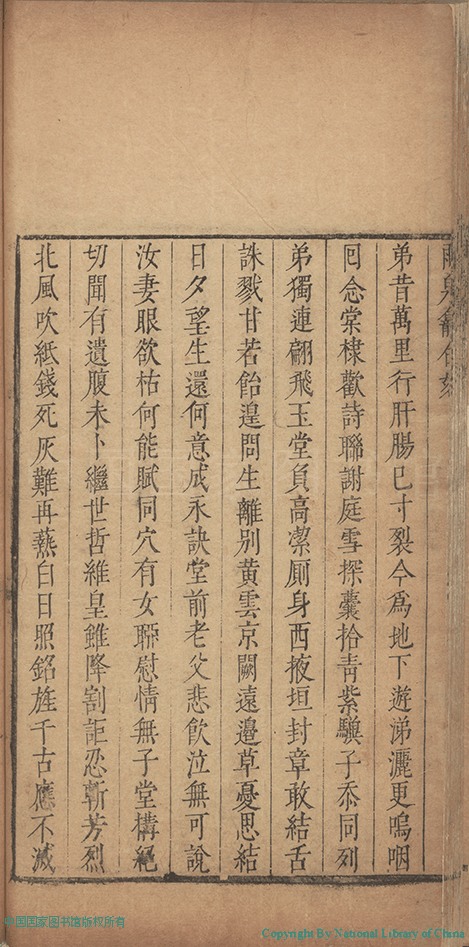 弟昔萬里行肝腸已寸裂今爲地下遊涕灑更嗚咽
囘念棠棣歡詩聯謝庭雪探囊拾靑紫驥子忝同列
弟獨連翩飛玉堂負高潔厠身西掖垣封章敢結舌
誅戮甘若飴遑問生離別黄雲京闕遠邉草憂思結
日夕望生還何意成永訣堂前老父悲飮泣無可說
汝妻眼欲枯何能賦同穴有女聊慰情無子堂構絕
切聞有遺腹未卜繼世哲維皇雖降割詎忍斬芳烈
北風吹紙錢死灰難再爇白日照銘旌千古應不滅
中国国家图书馆版权所有
Copyright By National Library of China